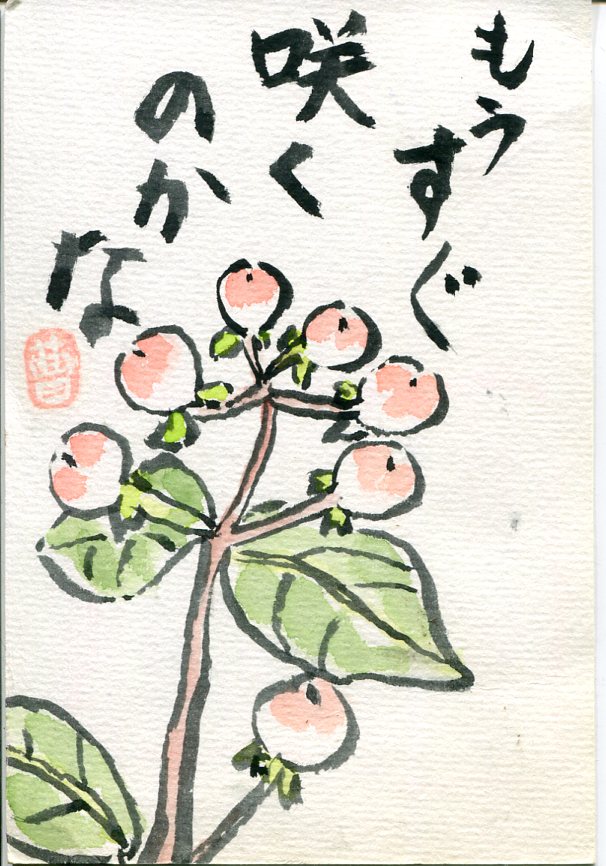 もう
すぐ
咲く
のか
な